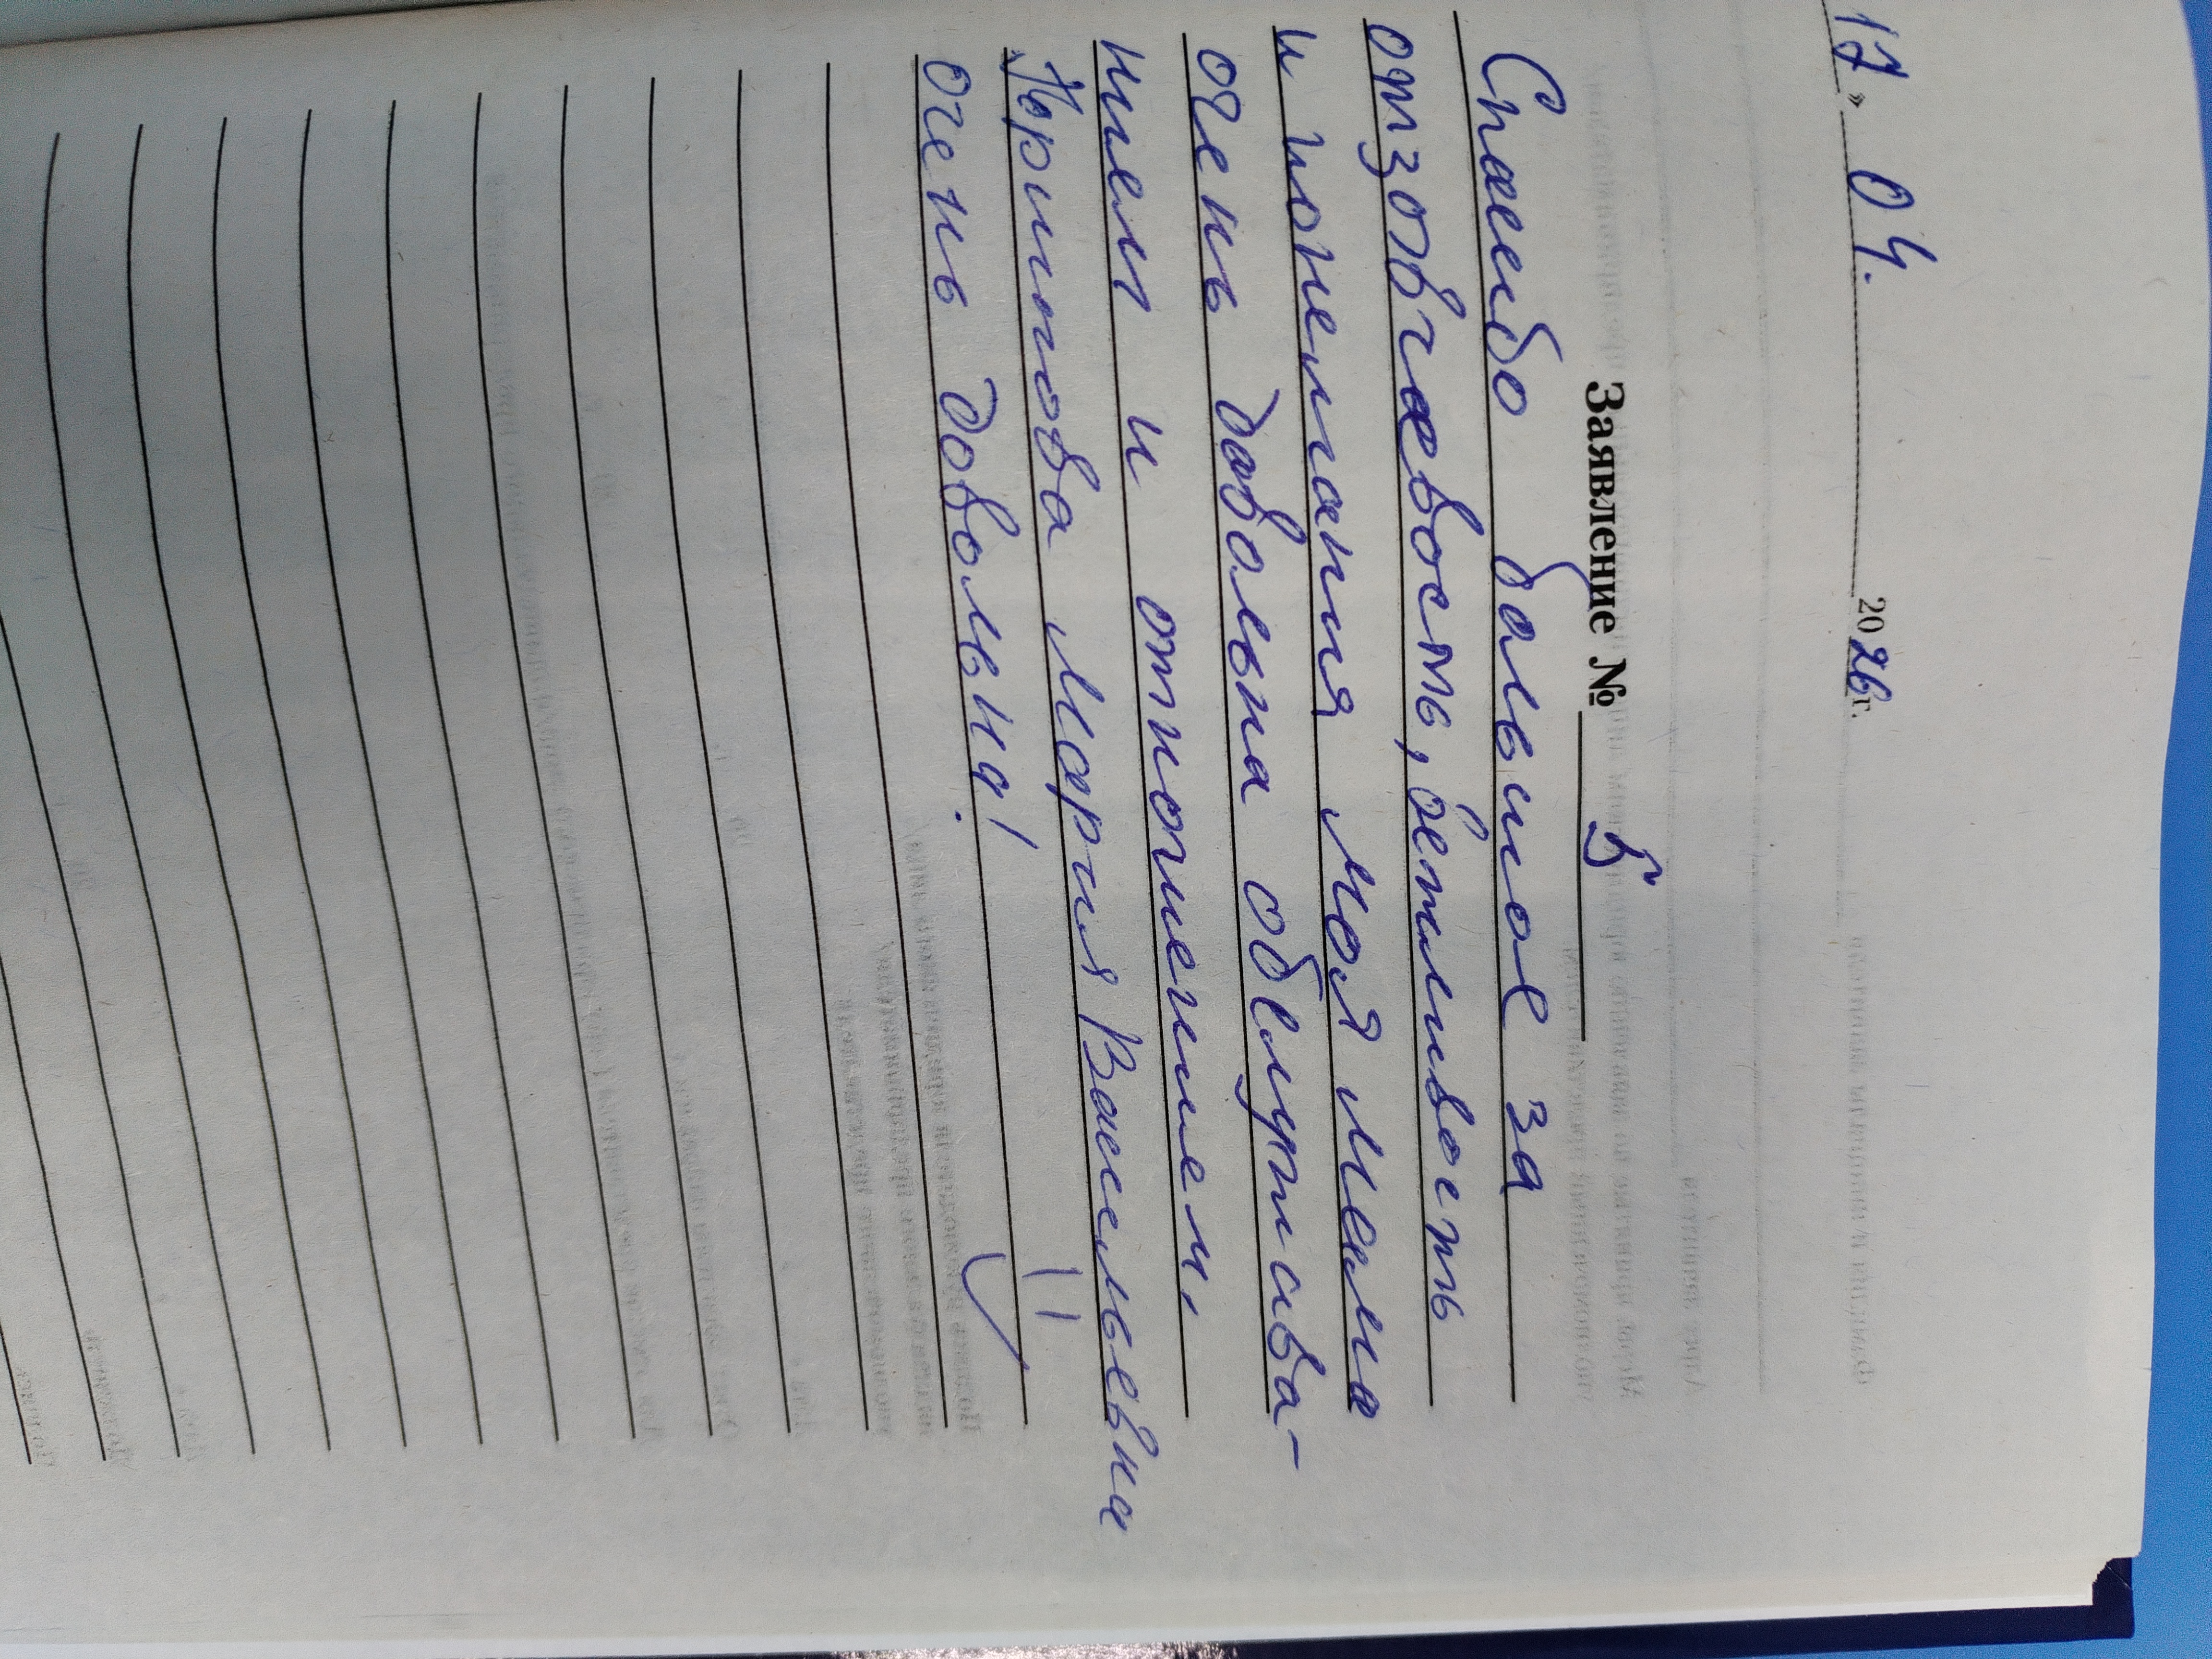 17 » 04. 2026 г.
Заявление № 5
Спасибо большое за
отзовчевость, ветливость
и понемгания моя мама
очень довольна обслужива-
нием и отношением,
Мария Васильевна
очень довольна!